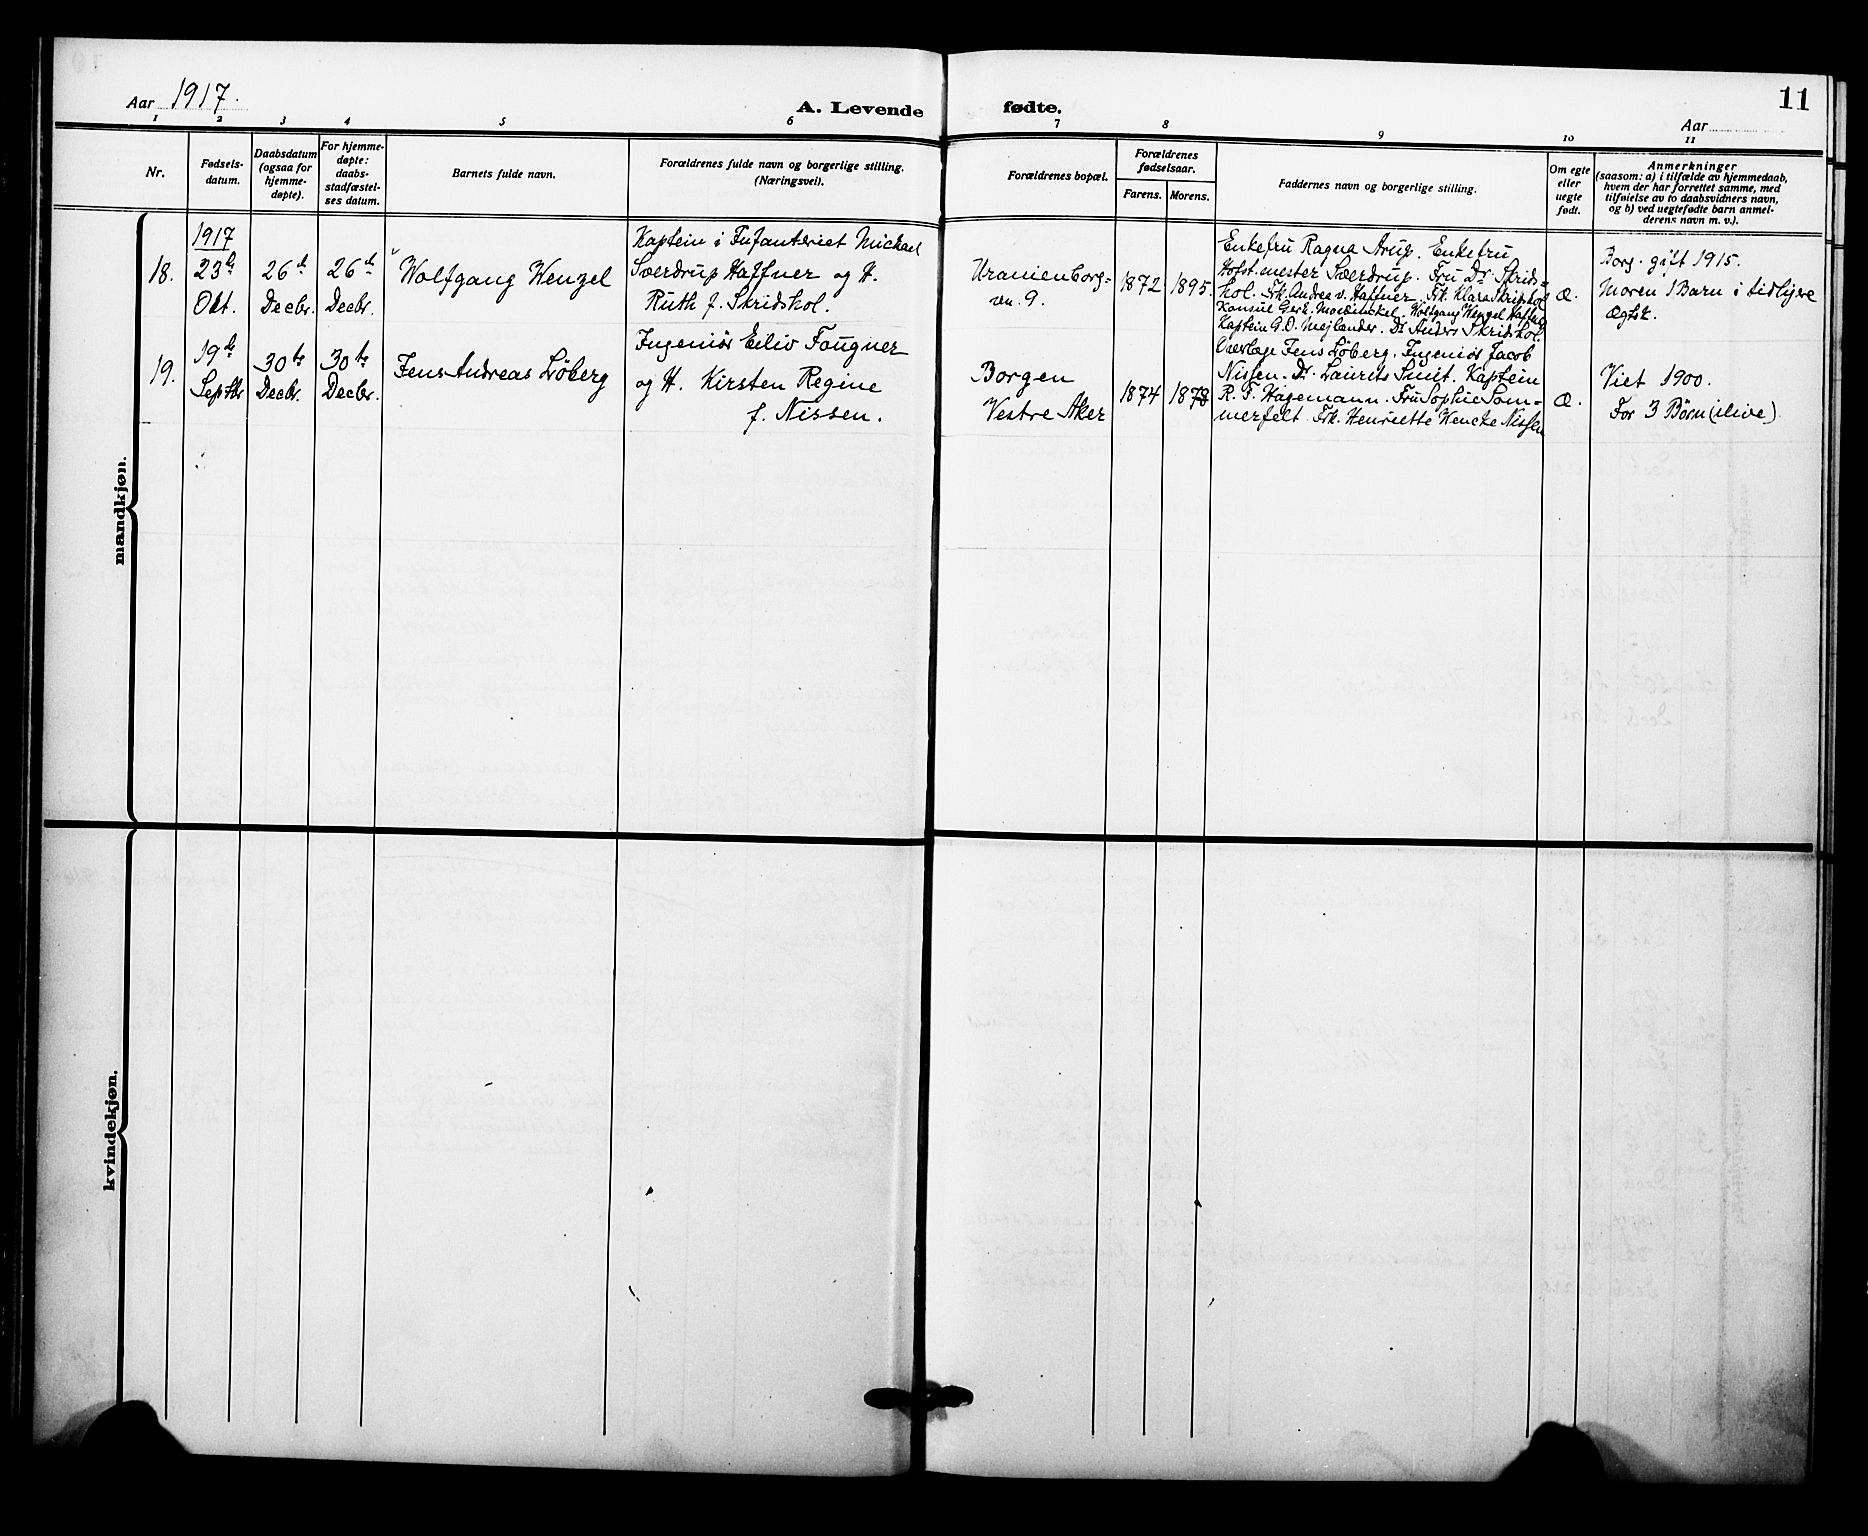 Aar 1917.
A. Levende fødte.
11
Aar
1 2 3 4 5 6 7 8 9 10 11
Nr.
Fødsels-
datum.
Daabsdatum
(ogsaa for
hjemme-
døpte).
For hjemme-
døpte:
daabs-
stadfæstel-
ses datum.
Barnets fulde navn.
Forældrenes fulde navn og borgerlige stilling.
(Næringsvei).
Forældrenes bopæl.
Forældrenes
fødselsaar.
Farens. Morens.
Faddernes navn og borgerlige stilling.
Om egte
eller
uegte
født.
Anmerkninger
(saasom: a) i tilfælde av hjemmedaab,
hvem der har forrettet samme, med
tilføielse av to daabsvidners navn,
og b) ved uegtefødte barn anmel-
derens navn m. v.).
mandkjøn.
18.
1917
23de
Okt.
26de
Decbr.
26de
Decbr.
Wolfgang Wenzel
Kaptein i Infanteriet Michael
Sverdrup Haffner og H.
Ruth f. Skridshol.
Uranienborg-
vn. 9.
1872
1895.
Enkefru Ragna Arup. Enkefru
Hofst.mester Sverdrup. Fru Dr. Skrids-
hol. Frk. Andrea v. Haffner. Frk. Klara Skridshol
Konsul Gerh. Mowinckel. Wolfgang Wenzel Haffner
Kaptein G. O. Mejlænder. Dr. Anders Skridshol.
Æ.
Borg. gift 1915.
Moren 1 Barn i tidligere
Ægtsk.
19.
19de
Septbr
30te
Decbr.
30te
Decbr.
Jens Andreas Löberg
Ingeniör Eiliv Fougner
og H. Kirsten Regine
f. Nissen.
Borgen
Vestre Aker
1874
1878
Overlæge Jens Löberg. Ingeniör Jacob
Nissen. Dr. Laurits Smit. Kaptein
R. F. Hagemann. Fru Sophie Som-
merfelt. Frk. Henriette Wencke Nissen
Æ.
Viet 1900.
För 3 Börn (ilive)
kvindekjøn.